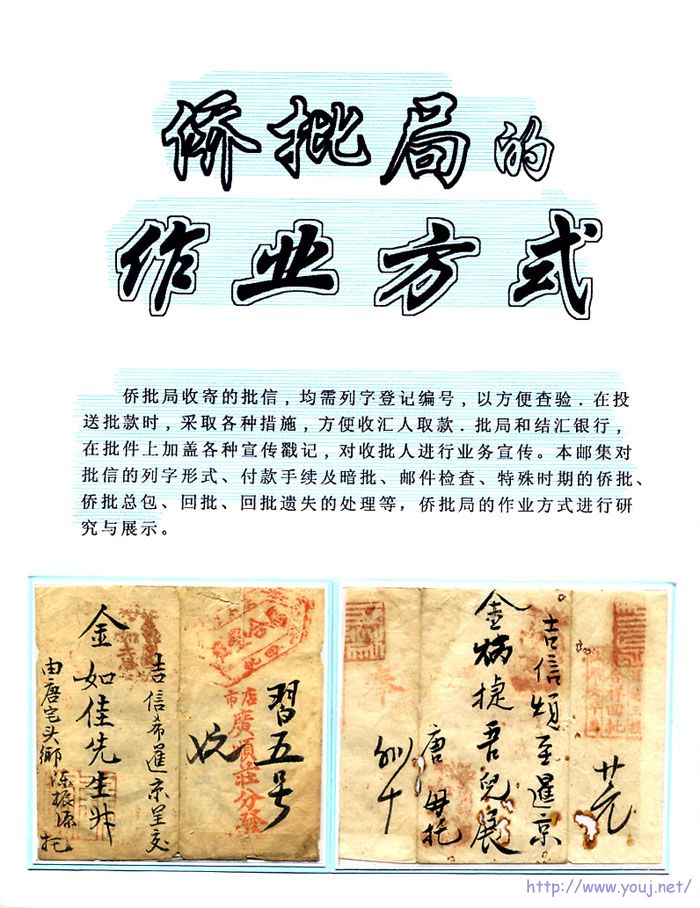 侨批局的
作业方式
侨批局收寄的批信，均需列字登记编号，以方便查验．在投
送批款时，采取各种措施，方便收汇人取款．批局和结汇银行，
在批件上加盖各种宣传戳记，对收批人进行业务宣传。本邮集对
批信的列字形式、付款手续及暗批、邮件检查、特殊时期的侨批、
侨批总包、回批、回批遗失的处理等，侨批局的作业方式进行研
究与展示。
習五号
市店
廣順莊分發
吉信希暹京呈交
金如佳先生
由唐宅头鄉
托
吉信煩至暹京
金炳捷吾兒展
唐母托
列十
http://www.youj.net/